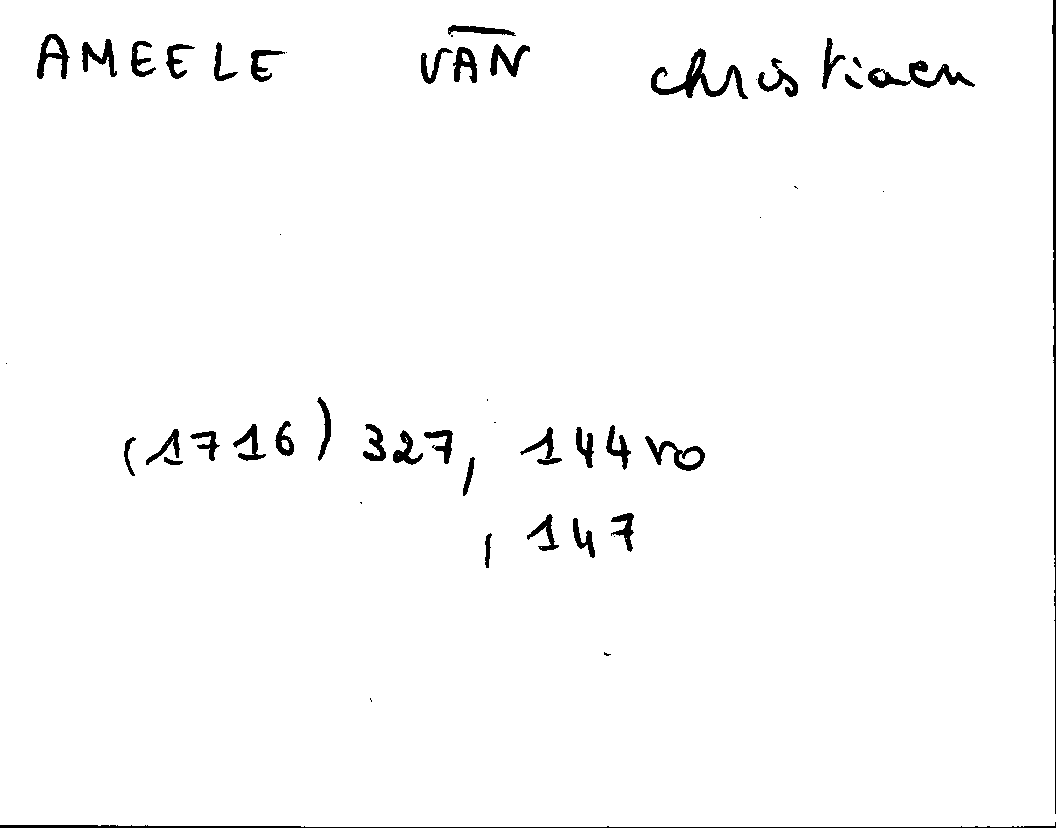 AMEELE VAN christiaen
(1716) 327, 144 ro
, 147